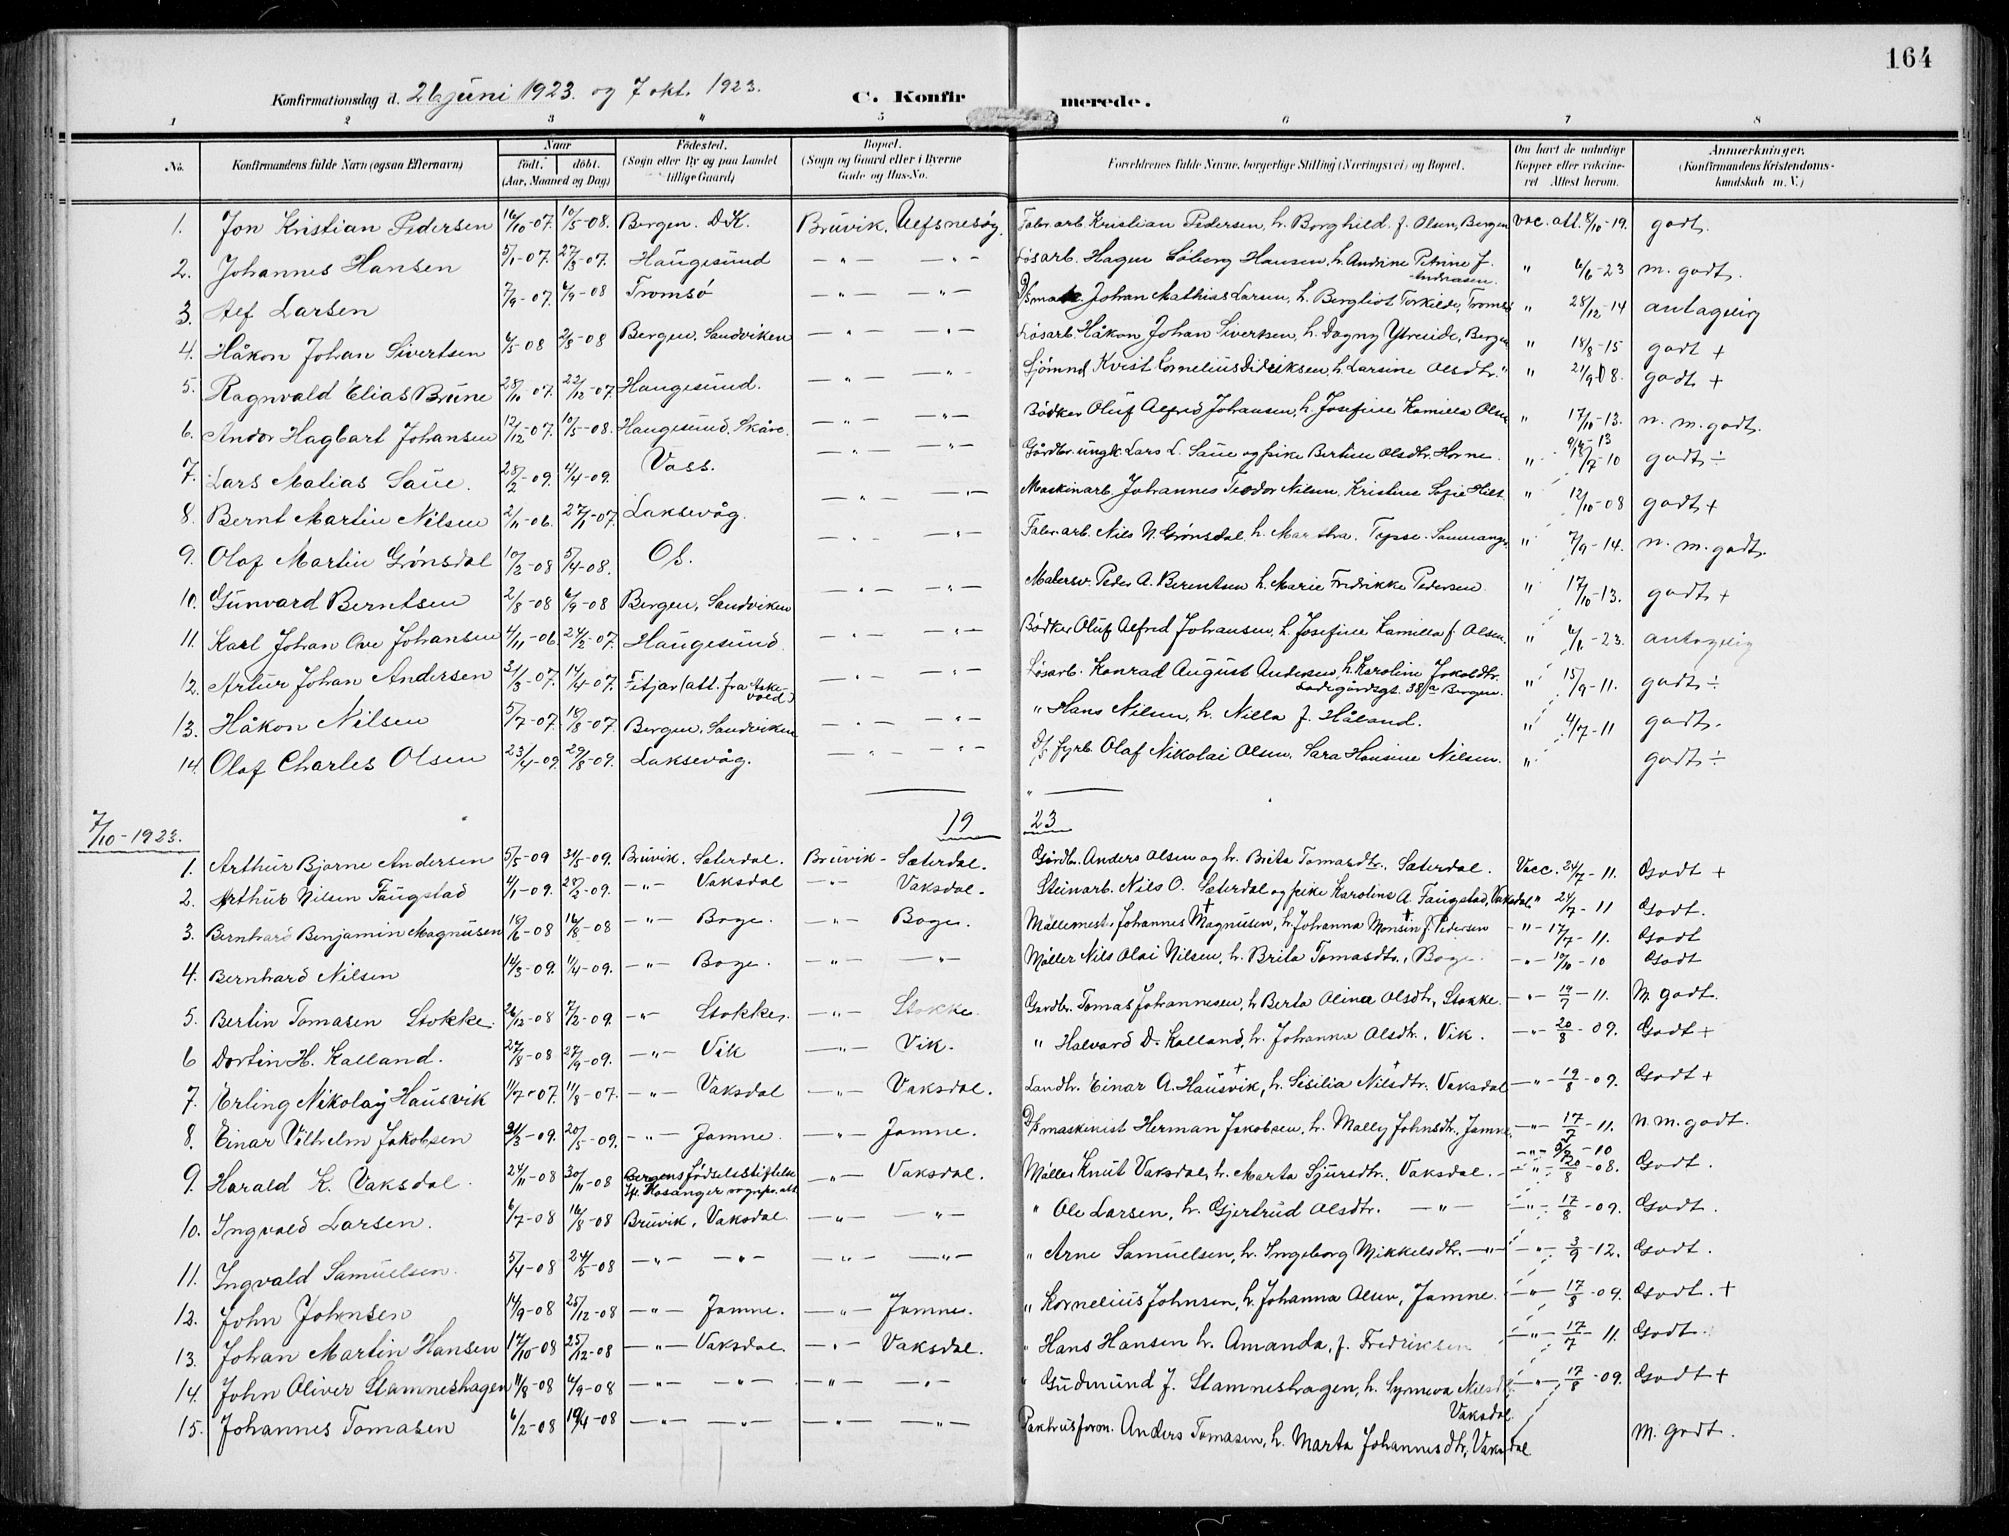 164
Konfirmationsdag d. 26 juni 1923. og 7 okt. 1923. C. Konfirmerede.
1 2 3 4 5 6 7 8
No. Konfirmandens fulde Navn (ogsaa Efternavn) Naar født. døbt. (Aar, Maaned og Dag) Fødested. (Sogn eller By og paa Landet tillige Gaard) Bopæl. (Sogn og Gaard eller i Byerne Gade og Hus-No. Forældrenes fulde Navne, borgerlige Stilling (Næringsvei) og Bopæl. Om havt de naturlige Kopper eller vakcineret Attest herom. Anmærkninger. (Konfirmandens Kristendomskundskab m. V.)
1. Jon Kristian Pedersen 16/10-07. 10/5-08. Bergen. D.K. Bruvik, Ulfsnesøy. Fabr. arb. Kristian Pedersen, h. Borghild f. Olsen, Bergen vac. att. 8/10-19. godt.
2. Johannes Hansen 5/1-07. 27/3-07. Haugesund — " — — " — Løsarb. Hagen Søberg Hansen, h. Andrine Petrine f. Andreasen. " 6/6-23 m. godt.
3. Alf Larsen 7/9-07. 6/9-08 Tromsø — " — — " — D/S mask. Johan Mathias Larsen, h. Bergliot Torkilds, Tromsø " 28/12-14 antagelig
4. Håkon Johan Sivertsen 6/5-08 2/8-08 Bergen, Sandviken — " — — " — Løsarb. Håkon Johan Sivertsen, h. Dagny Ytreeide, Bergen " 18/8-15 godt +
5. Ragnvald Elias Brune 28/10-07. 22/12-07. Haugesund. — " — — " — Sjømnd Kvist Cornelius Didriksen, h. Larsine Olsdtr. " " 21/9 08. godt +
6. Andor Hagbart Johansen 12/12-07. 10/5-08. Haugesund, Skåre. — " — — " — Bødker Oluf Alfred Johansen, h. Josefine Kamilla Olsen " 17/10-13. n. m. godt.
7. Lars Matias Saue. 28/2-09. 4/4-09. Voss. — " — — " — Gårdbr. ungk. Lars L. Saue og pike Bertine Olsdtr. Horne. " 18/7-10 godt ÷
8. Bernt Martin Nilsen 2/11-06. 27/1-07. Laksevåg. — " — — " — Maskinarb. Johannes Teodor Nilsen, Kristine Sofie Hilt " 12/10-08 godt +
9. Olaf Martin Grønsdal 10/2-08 5/4-08. Os. — " — — " — Fabr. arb. Nils N. Grønsdal, h. Mar tha. Tysse. Samnanger " 7/9-14. n. m. godt.
10. Gunvard Berntsen 2/8-08 6/9-08 Bergen, Sandviken — " — — " — Malersv. Peder A. Berentsen h. Marie Fredrikke Pedersen " 17/10-13. godt +
11. Karl Johan Ove Johansen 4/11-06. 24/2-07. Haugesund. — " — — " — Bødker Oluf Alfred Johansen, h. Josefine Kamilla f. Olsen. " 6/6-23. antagelig
12. Artur Johan Andersen 31/3-07. 14/4-07. Fitjar (att. fra Askevold) — " — — " — Løsarb. Konrad August Andersen, h. Karoline Jakobdtr. Ladegårdsgt. 38/a Bergen. " 15/9-11. godt ÷
13. Håkon Nilsen 5/7-07. 18/8-07. Bergen, Sandviken — " — — " — " Hans Nilsen, h. Nilla f. Håland. " 4/7-11 godt.
14. Olaf Charles Olsen 23/4-09. 29/8-09. Laksevåg. — " — — " — D/S fyrb. Olaf Nikolai Olsen, Sara Hansine Nilsen. " godt ÷
7/10-1923. 19 23
1. Arthur Bjarne Andersen 5/5-09 31/5-09. Bruvik. Sæterdal. Bruvik - Sæterdal. Gårdbr. Anders Olsen og h. Brita Tomasdtr. Sæterdal. Vacc. 24/7-11. Godt +
2. Arthur Nilsen Faugstad 4/1-09. 28/2-09. — " — Vaksdal — " — Vaksdal. Steinarb. Nils O. Sæterdal og pike Karolina A. Faugstad, Vaksdal " 24/7-11 Godt.
3. Bernhard Benjamin Magnusen 18/6-08 16/8-08 — " — Boge. — " — Boge. Møllemest. Johannes Magnusen, h. Johanna Monsen f. Pedersen — " — 17/7-11. Godt
4. Bernhard Nilsen 14/3-09. 11/4-09. — " — Boge. — " — — " — Møller Nils Olai Nilsen, h. Brita Tomasdtr., Boge — " — 10/10-10 Godt
5. Bertin Tomasen Stokke. 26/12-08 7/2-09. — " — Stokke. — " — Stokke. Gardbr. Tomas Johannesen, h. Berta Olina Olsdtr, Stokke. — " — 19/7-11. M. godt.
6 Dortin H. Kalland. 27/8-08 27/9-09. — " — Vik — " — Vik. " Halvard D. Kalland, h. Johanna Olsdtr. Vik. — " — 20/8-09. Godt +
7. Erling Nikolay Hausvik 11/7-07. 11/8-07. — " — Vaksdal — " — Vaksdal. Landh. Einar A. Hausvik, h. Sisilia Nilsdtr. Vaksdal — " — 19/8-09. Godt +
8. Einar Vilhelm Jakobsen 31/3-09. 20/5-09. — " — Jamne. — " — Jamne. D/S maskinist Herman Jakobsen, h. Mally Johnsdtr, Jamne. — " — 17/7-11. N. m. godt.
9. Harald K. Vaksdal. 24/11-08 30/11-08 Bergens Fødselsstiftelse — " — Vaksdal. Møller Knut Vaksdal, h. Marta Sjursdtr. Vaksdal. — " — 20/8-08. Godt.
10. Ingvald Larsen. 6/7-08 16/8-08 Bruvik, Vaksdal. — " — — " — " Ole Larsen, h. Gjertrud Olsdtr. — " — — " — 17/8-09. Godt.
11. Ingvald Samuelsen. 5/4-08 24/5-08 — " — — " — — " — — " — " Arne Samuelsen, h. Ingeborg Mikkelsdtr. — " — — " — 3/9-12. Godt.
12. John Johnsen 14/9-08 25/12-08 — " — Jamne. — " — Jamne. " Kornelius Johnsen, h. Johanna Olsen, Jamne. — " — 17/8-09. Godt. +
13. Johan Martin Hansen 17/10-08 25/12-08 — " — Vaksdal. — " — Vaksdal. " Hans Hansen h. Amanda, f. Fredriksen — " — 17/7-11. Godt.
14. John Oliver Stamneshagen 11/8-08 6/9-08 — " — — " — — " — — " — " Gudmund J. Stamneshagen, h. Synneva Nilsdtr. Vaksdal. — " — 17/8-09. Godt +
15. Johannes Tomasen 6/2-08 19/4-08 — " — — " — — " — — " — Pakhusform. Anders Tomasen, h. Marta Johannesdtr, Vaksdal M. godt.